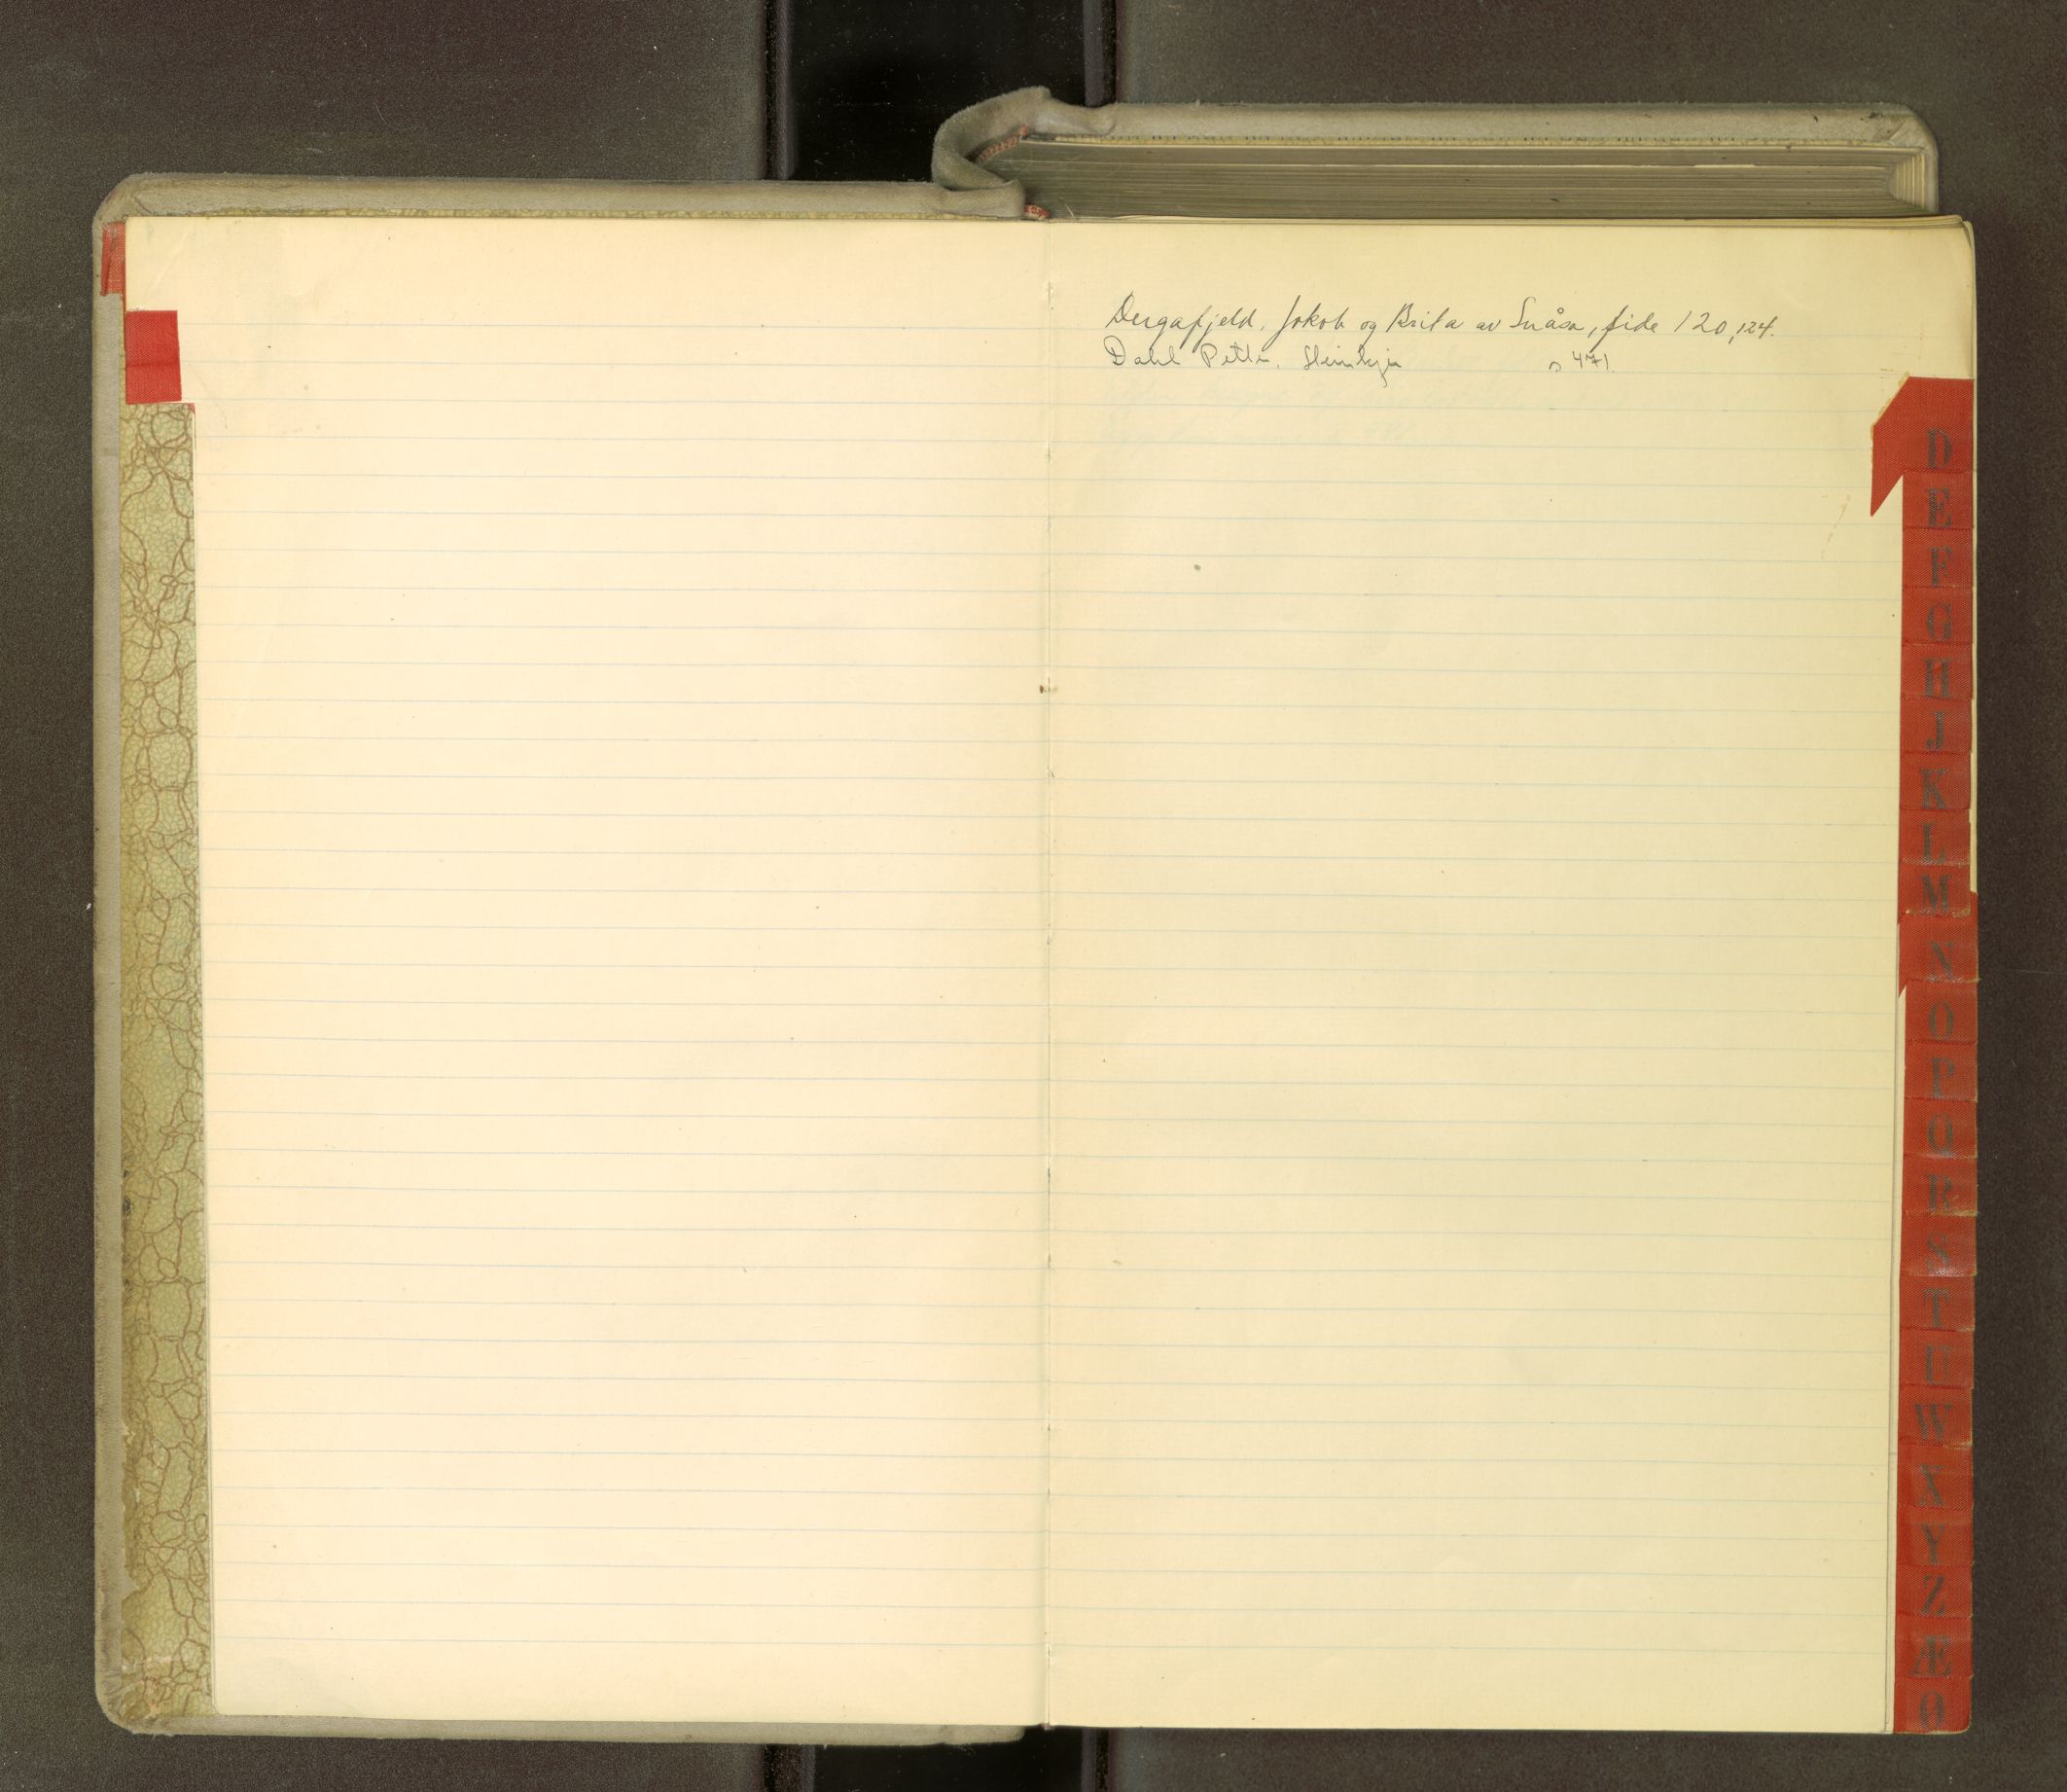 Dergafjeld, Jakob og Brita av Snåsa, side 120, 124.
Dahl Petter. Steinkjer " 471
D
E
F
G
H
J
K
L
M
N
O
P
Q
R
S
T
U
W
X
Y
Z
Æ
Ø